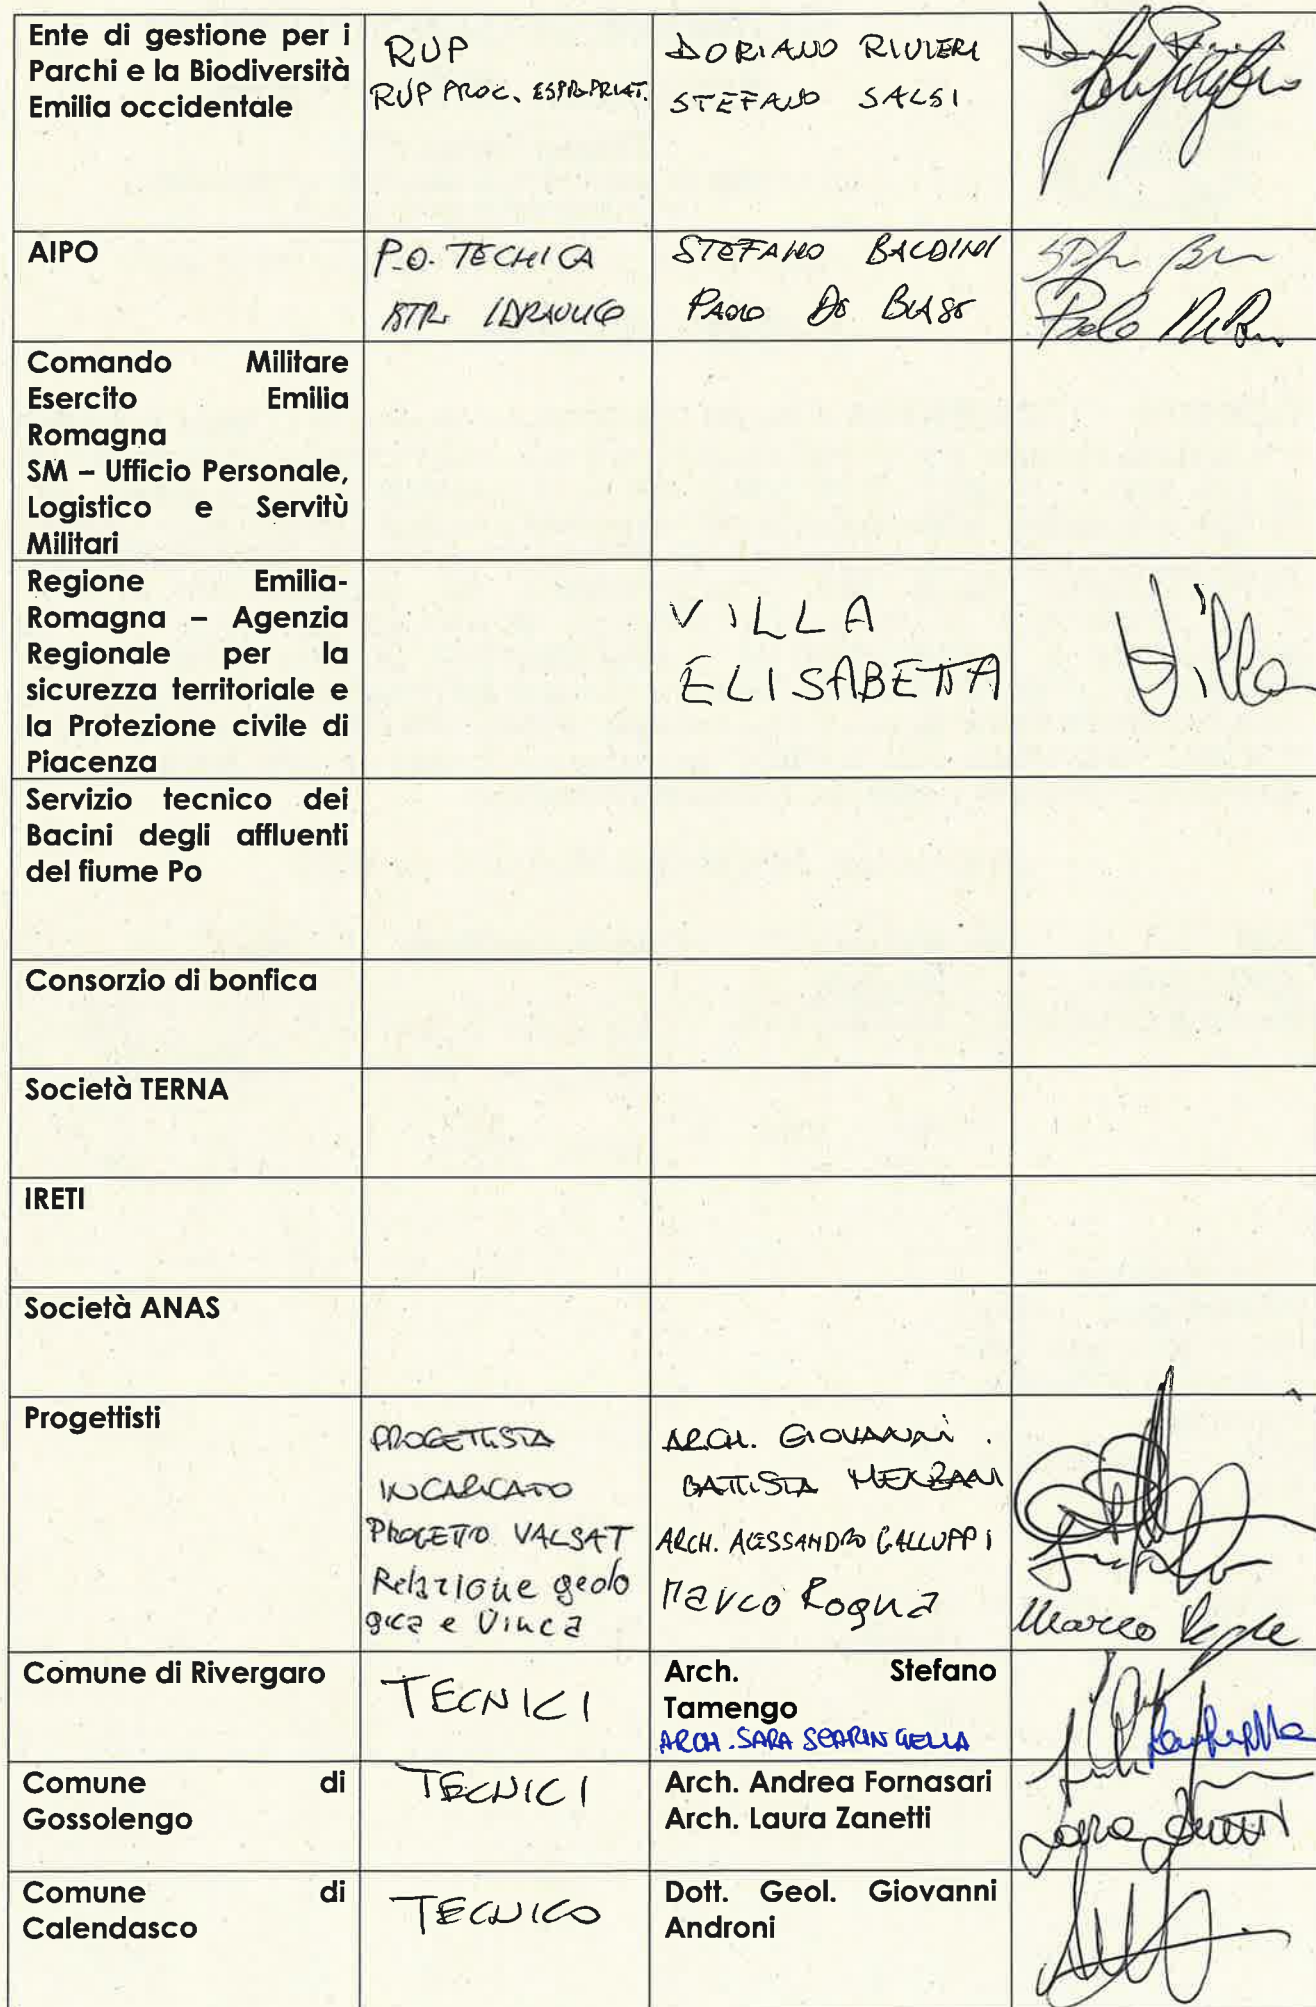 Ente di gestione per i
Parchi e la Biodiversità
Emilia occidentale
RUP
RUP PROC. ESPROPRIAT.
DORIANO RIVIERI
STEFANO SALSI
AIPO
P.O. TECHICA
ISTR. IDRAULICO
STEFANO BALDINI
PAOLO DE BIASE
Comando Militare
Esercito Emilia
Romagna
SM – Ufficio Personale,
Logistico e Servitù
Militari
Regione Emilia-
Romagna – Agenzia
Regionale per la
sicurezza territoriale e
la Protezione civile di
Piacenza
VILLA
ELISABETTA
Villa
Servizio tecnico dei
Bacini degli affluenti
del fiume Po
Consorzio di bonfica
Società TERNA
IRETI
Società ANAS
Progettisti
PROGETTISTA
INCARICATO
PROGETTO VALSAT
Relazione geolo
gica e Vinca
ARCH. GIOVANNI
BATTISTA
ARCH. ALESSANDRO GALLUPPI
Marco Rogna
Marco
Comune di Rivergaro
TECNICI
Arch. Stefano
Tamengo
ARCH. SARA SCARINGELLA
Comune di
Gossolengo
TECNICI
Arch. Andrea Fornasari
Arch. Laura Zanetti
Comune di
Calendasco
TECNICO
Dott. Geol. Giovanni
Androni